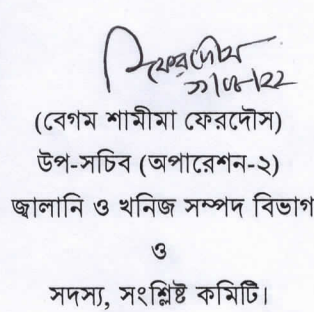 ফেরদৌস
(বেগম শামীমা ফেরদৌস)
উপ-সচিব (অপারেশন-২)
জ্বালানি ও খনিজ সম্পদ বিভাগ
ও
সদস্য, সংশ্লিষ্ট কমিটি।